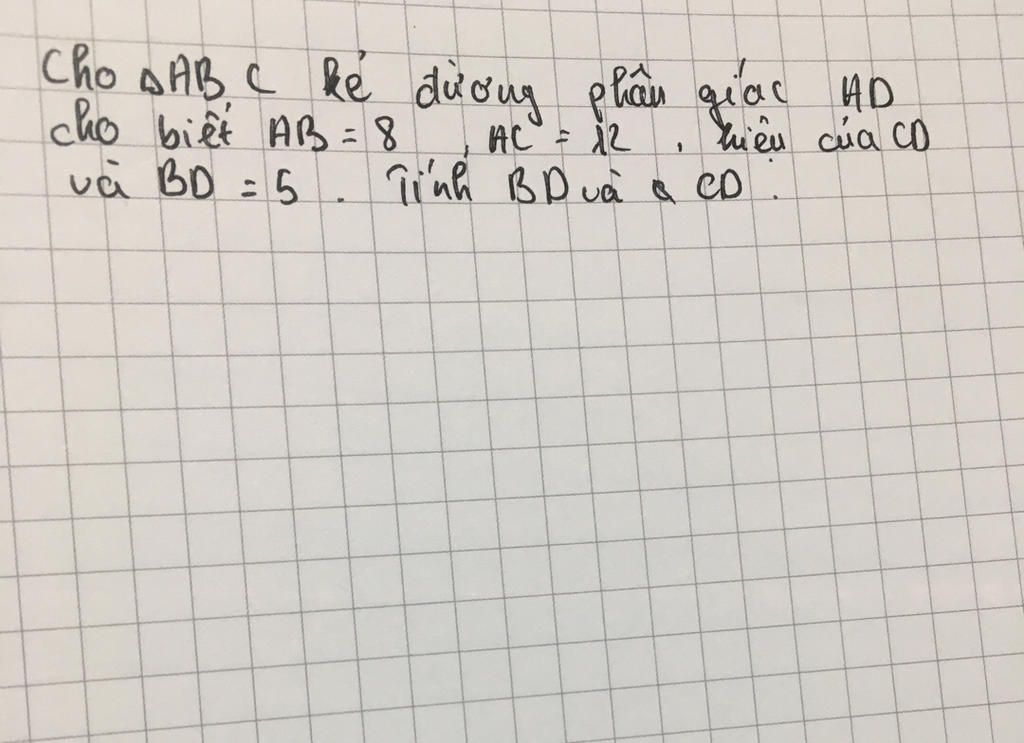 Cho △ABC Kẻ đường phân giác AD
cho biết AB = 8 , AC = 12 . hiệu của CD
và BD = 5 . Tính BD và CD .